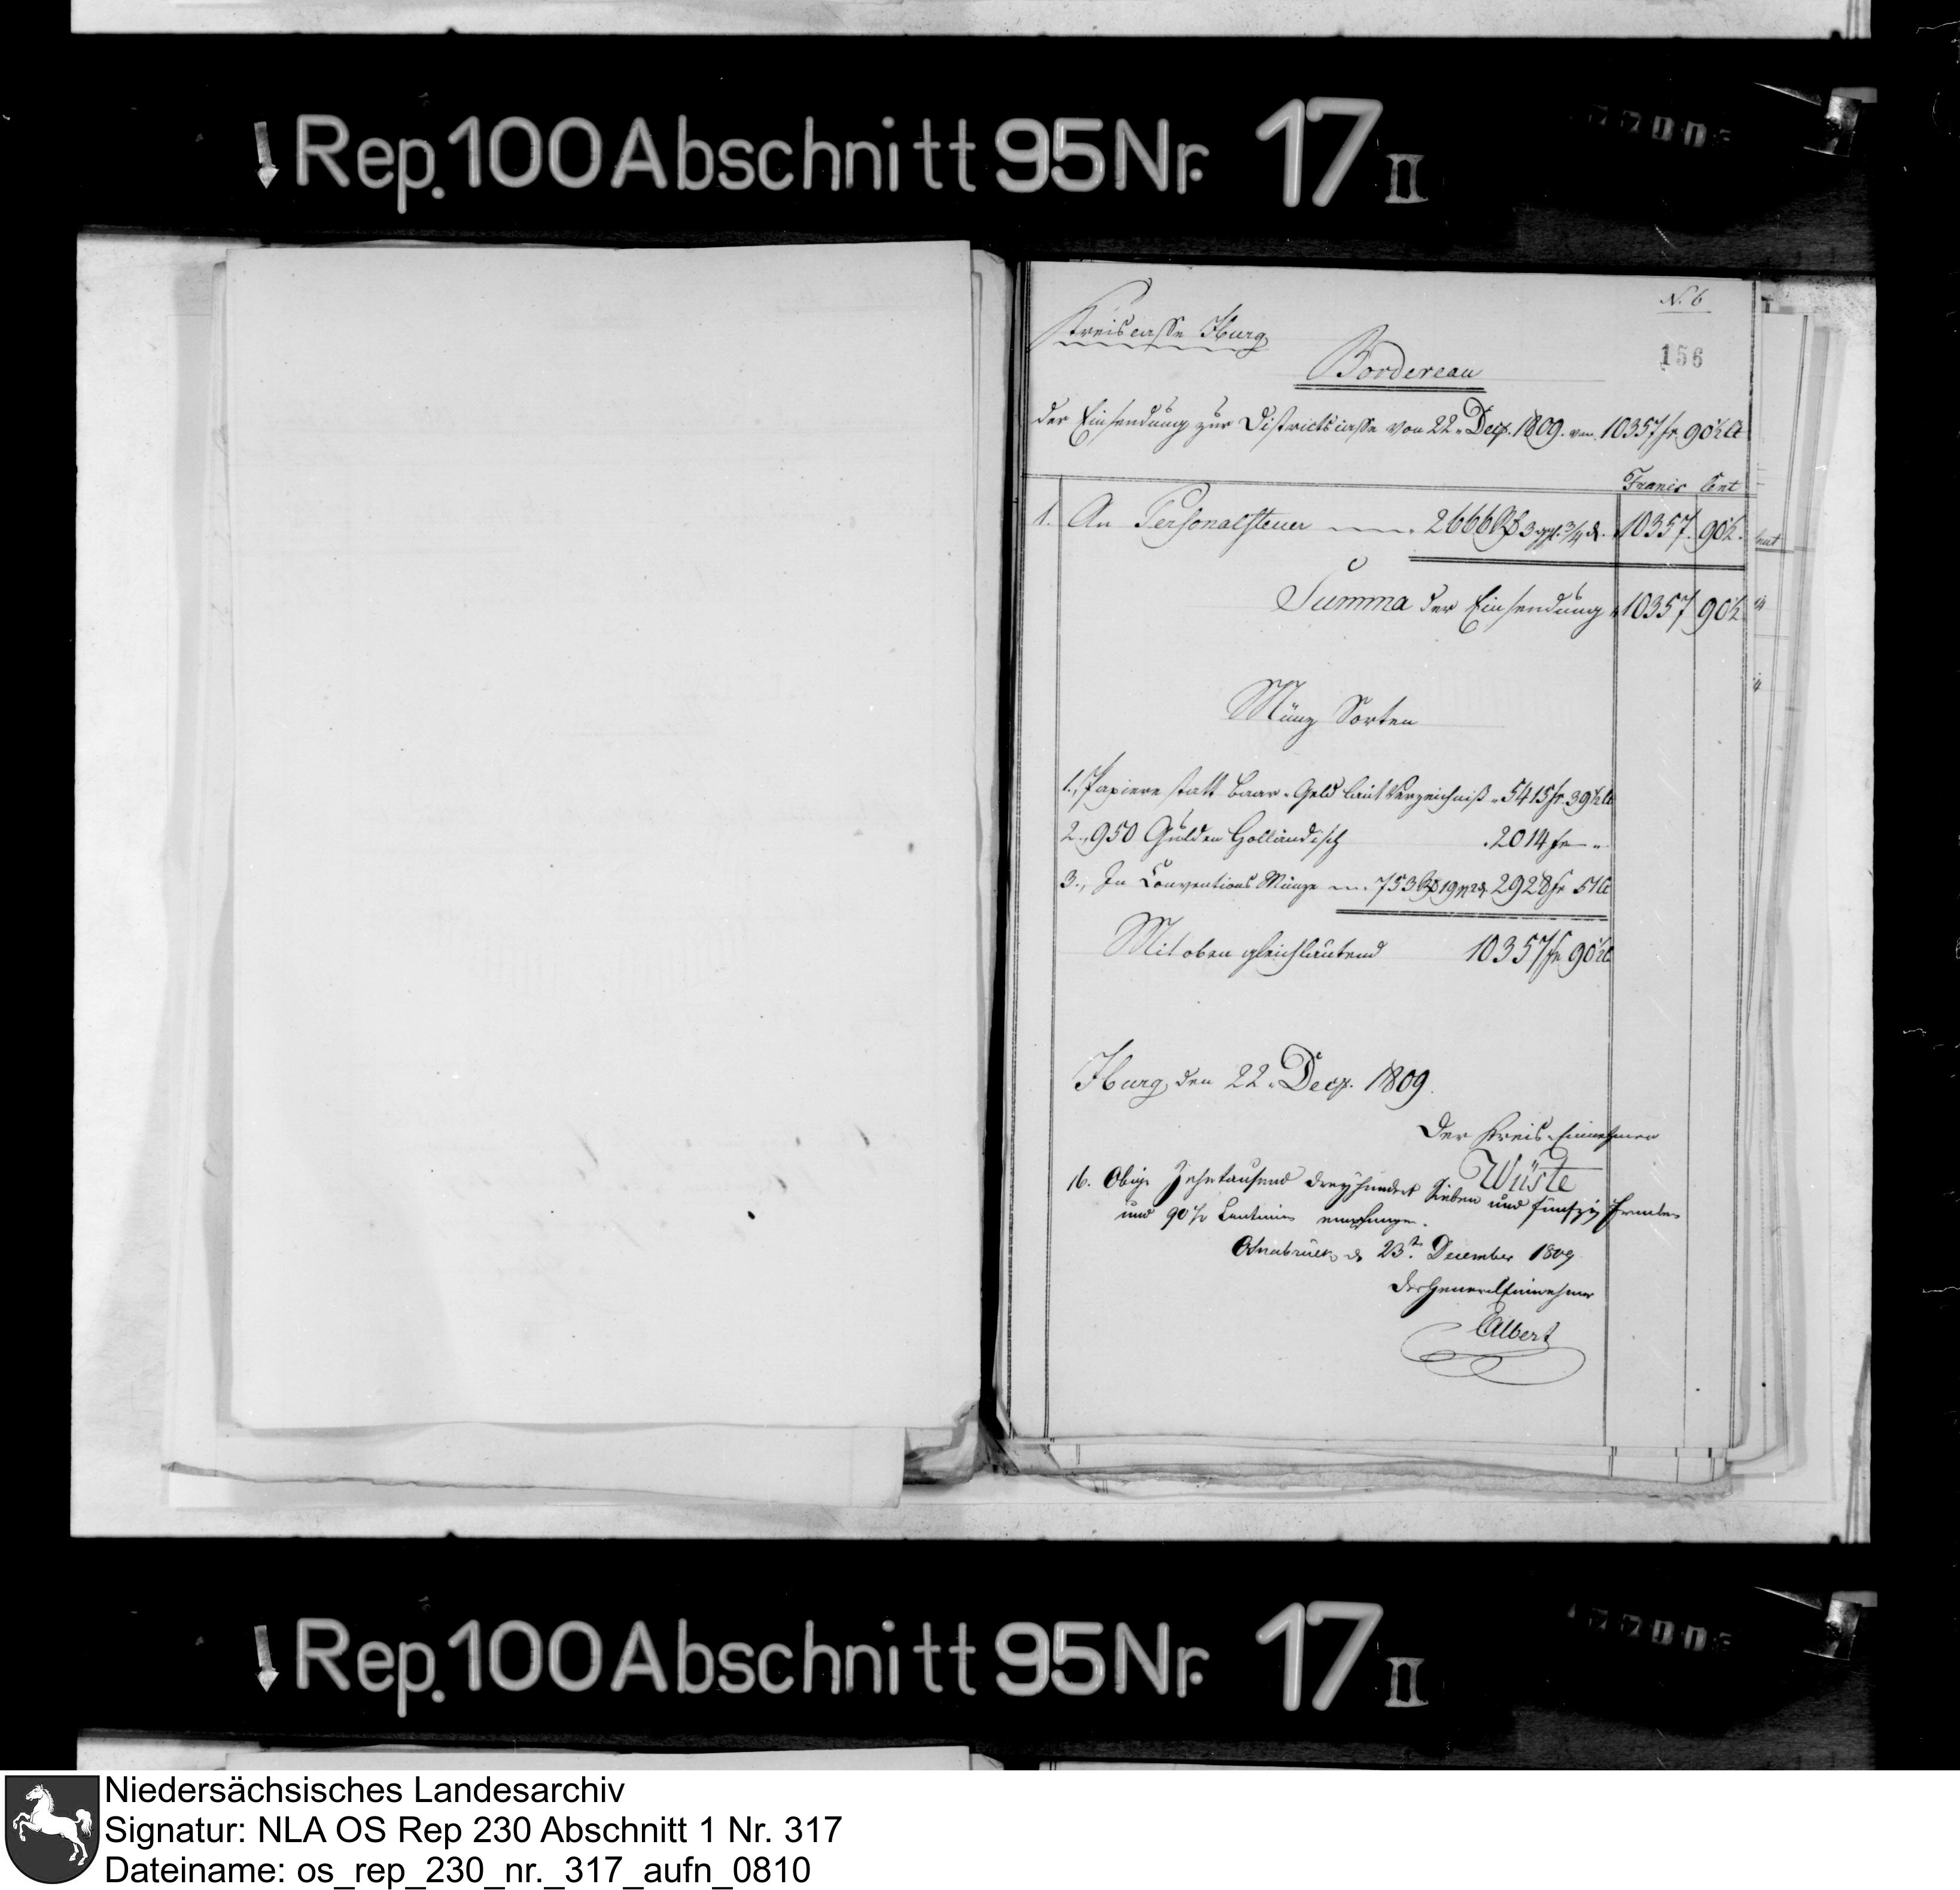 Rep. 100 Abschnitt 95 Nr. 17 II
N. 6
Kreiscasse Iburg
156
Bordereau
der Einsendung zur Districtscasse von 22. Decz. 1809. von 10357 fr 90½ Ct
Francs Cent
1. An Personalsteuer 2666 Rt 3 ggl. ¾ d. 10357. 90½.
Summa der Einsendung 10357 90½
Münz Sorten
1., Papiere statt baar Geld laut Verzeichniß 5415 fr. 39½ Ct
2., 950 Gulden Holländisch 2014 fr „
3., In Conventions Münze 753 Rt 19 2928 fr 51 Ct
Mit oben gleichlautend 10357 fr 90½ Ct
Iburg, den 22. Decz. 1809.
Der Kreis-Einnehmer
Wüste
16. Obige Zehntausend dreyhundert Sieben und fünfzig Franken
und 90½ Centimes empfangen.
Osnabrück d 23t. December 1809
Der General Einnehmer
Albert
Rep. 100 Abschnitt 95 Nr. 17 II
Niedersächsisches Landesarchiv
Signatur: NLA OS Rep 230 Abschnitt 1 Nr. 317
Dateiname: os_rep_230_nr._317_aufn_0810